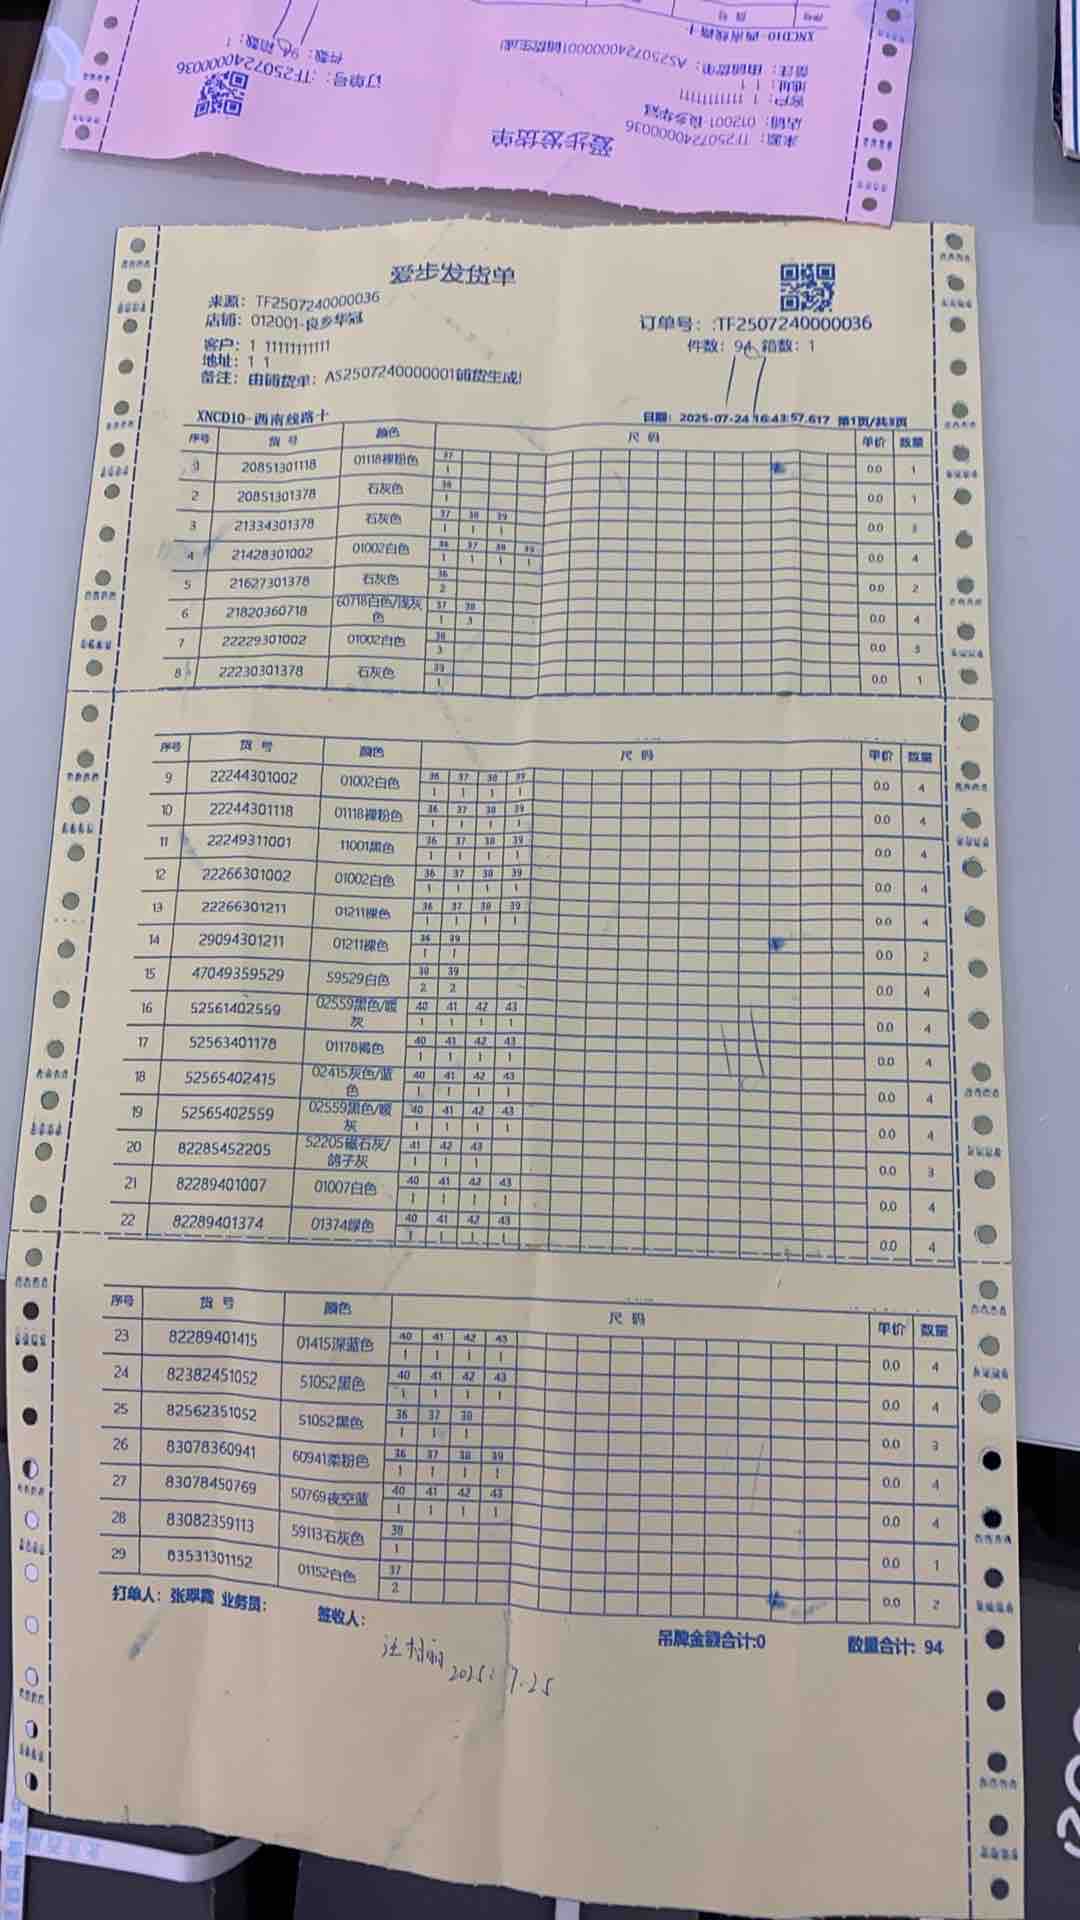 爱步发货单
来源：TF2507240000036
店铺：012001-良乡华冠
客户：1 11111111111
地址：1 1
备注：由铺货单：AS2507240000001铺货生成!
订单号：:TF2507240000036
件数：94 箱数：1
XNCD10-西南线路十
日期：2025-07-24 16:43:57.617 第1页/共3页
序号 货号 颜色 尺码 单价 数量
37
1 20851301118 01118裸粉色 1 0.0 1
38
2 20851301378 石灰色 1 0.0 1
37 38 39
3 21334301378 石灰色 1 1 1 0.0 3
36 37 38 39
4 21428301002 01002白色 1 1 1 1 0.0 4
36
5 21627301378 石灰色 2 0.0 2
37 38
6 21820360718 60718白色/浅灰色 1 3 0.0 4
38
7 22229301002 01002白色 3 0.0 3
39
8 22230301378 石灰色 1 0.0 1
序号 货号 颜色 尺码 单价 数量
36 37 38 39
9 22244301002 01002白色 1 1 1 1 0.0 4
36 37 38 39
10 22244301118 01118裸粉色 1 1 1 1 0.0 4
36 37 38 39
11 22249311001 11001黑色 1 1 1 1 0.0 4
36 37 38 39
12 22266301002 01002白色 1 1 1 1 0.0 4
36 37 38 39
13 22266301211 01211裸色 1 1 1 1 0.0 4
36 39
14 29094301211 01211裸色 1 1 0.0 2
38 39
15 47049359529 59529白色 2 2 0.0 4
40 41 42 43
16 52561402559 02559黑色/暖灰 1 1 1 1 0.0 4
40 41 42 43
17 52563401178 01178褐色 1 1 1 1 0.0 4
40 41 42 43
18 52565402415 02415灰色/蓝色 1 1 1 1 0.0 4
40 41 42 43
19 52565402559 02559黑色/暖灰 1 1 1 1 0.0 4
41 42 43
20 82285452205 52205磁石灰/鸽子灰 1 1 1 0.0 3
40 41 42 43
21 82289401007 01007白色 1 1 1 1 0.0 4
40 41 42 43
22 82289401374 01374绿色 1 1 1 1 0.0 4
序号 货号 颜色 尺码 单价 数量
40 41 42 43
23 82289401415 01415深蓝色 1 1 1 1 0.0 4
40 41 42 43
24 82382451052 51052黑色 1 1 1 1 0.0 4
36 37 38
25 82562351052 51052黑色 1 1 1 0.0 3
36 37 38 39
26 83078360941 60941柔粉色 1 1 1 1 0.0 4
40 41 42 43
27 83078450769 50769夜空蓝 1 1 1 1 0.0 4
38
28 83082359113 59113石灰色 1 0.0 1
37
29 83531301152 01152白色 2 0.0 2
打单人：张翠霞 业务员： 签收人： 吊牌金额合计:0 数量合计：94
2025.7.25
爱步发货单
来源：TF2507240000036
店铺：012001-良乡华冠
客户：1 11111111111
地址：1 1
备注：由铺货单：AS2507240000001铺货生成!
订单号：:TF2507240000036
件数：94 箱数：1
XNCD10-西南线路十
序号 货号